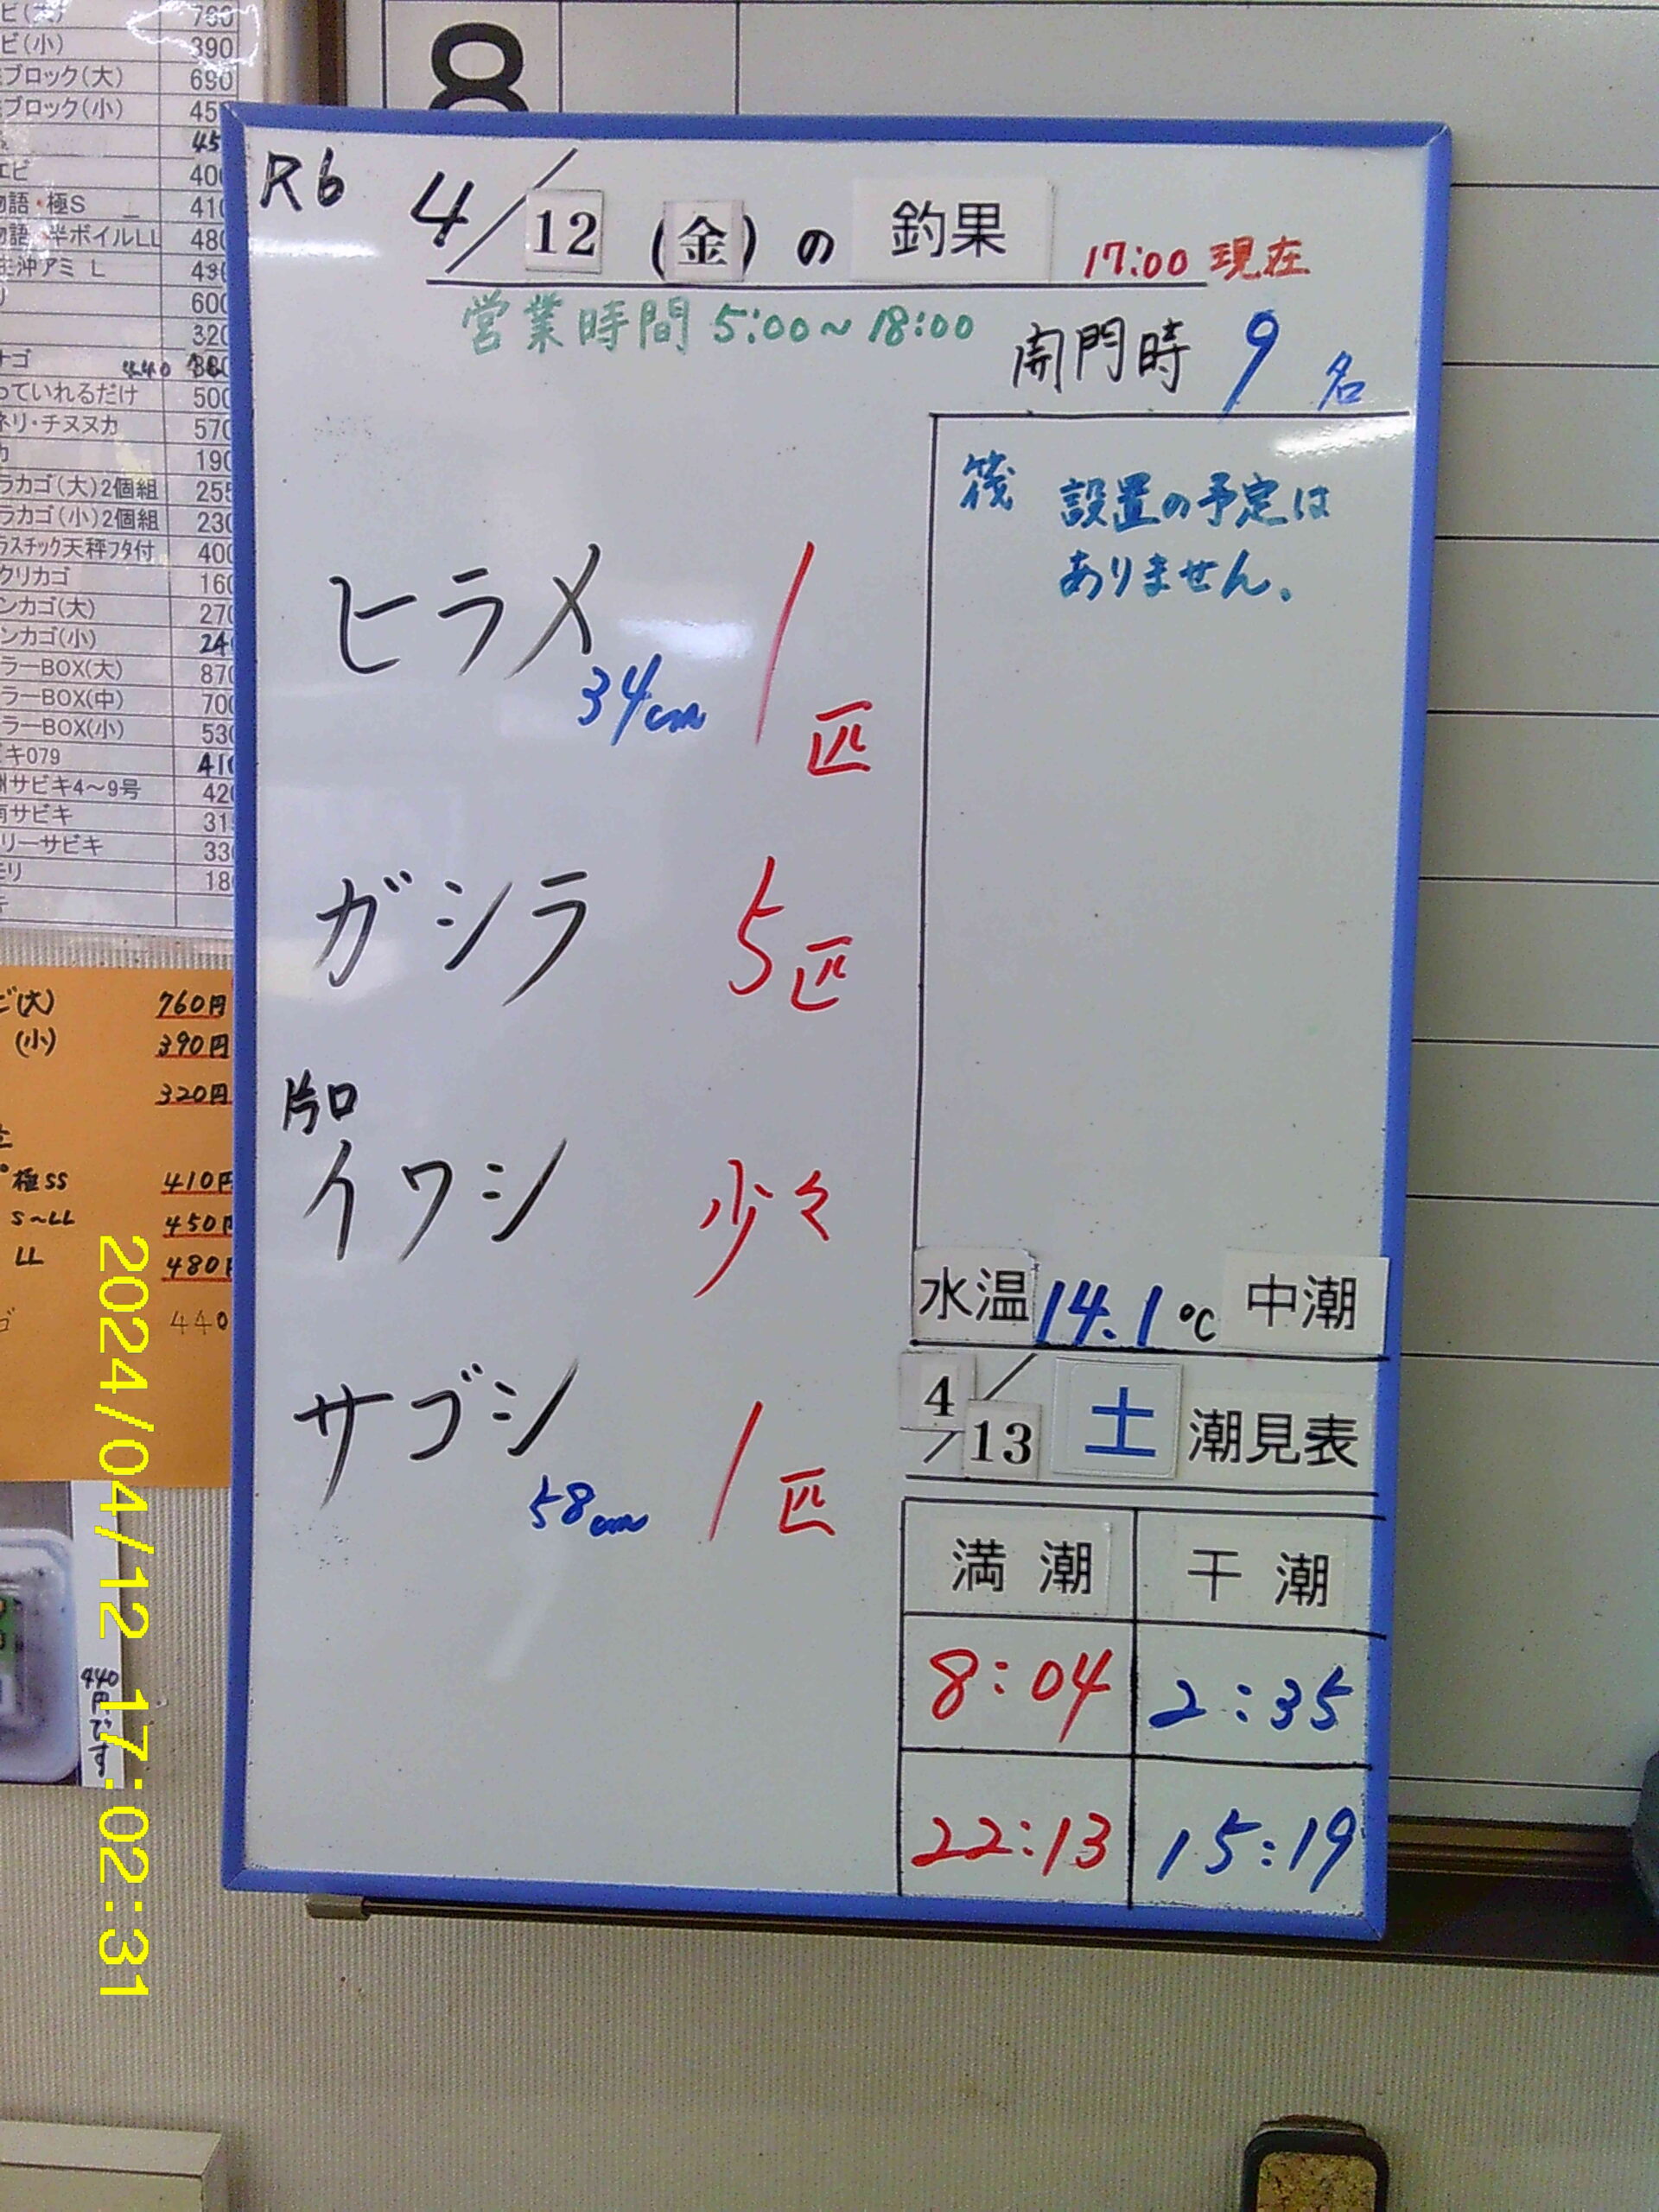 ビ(大) 760
ビ(小) 390
ブロック(大) 690
ブロック(小) 45
45
エビ 400
語・極S 410
語・半ボイルLL 480
沖アミ L 490
600
320
サゴ 440
っていれるだけ 500
ネリ・チヌヌカ 570
カ 190
ラカゴ(大)2個組 255
ラカゴ(小)2個組 230
ラスチック天秤フタ付 400
クリカゴ 160
ンカゴ(大) 270
ンカゴ(小) 24
ラーBOX(大) 870
ラーBOX(中) 700
ラーBOX(小) 530
キ079 410
サビキ4～9号 420
サビキ 31
リーサビキ 33
モリ 18
ビ(大) 760円
(小) 390円
320円
極SS 410円
S~LL 450円
LL 480円
ゴ 440
440円です
8
R6 4/12(金)の釣果 17:00現在
営業時間 5:00～18:00
開門時 9名
筏 設置の予定は
ありません。
ヒラメ 34cm 1匹
ガシラ 5匹
片口
イワシ 少々
サゴシ 58cm 1匹
水温 14.1℃ 中潮
4/13 土 潮見表
満潮 干潮
8:04 2:35
22:13 15:19
2024/04/12 17:02:31